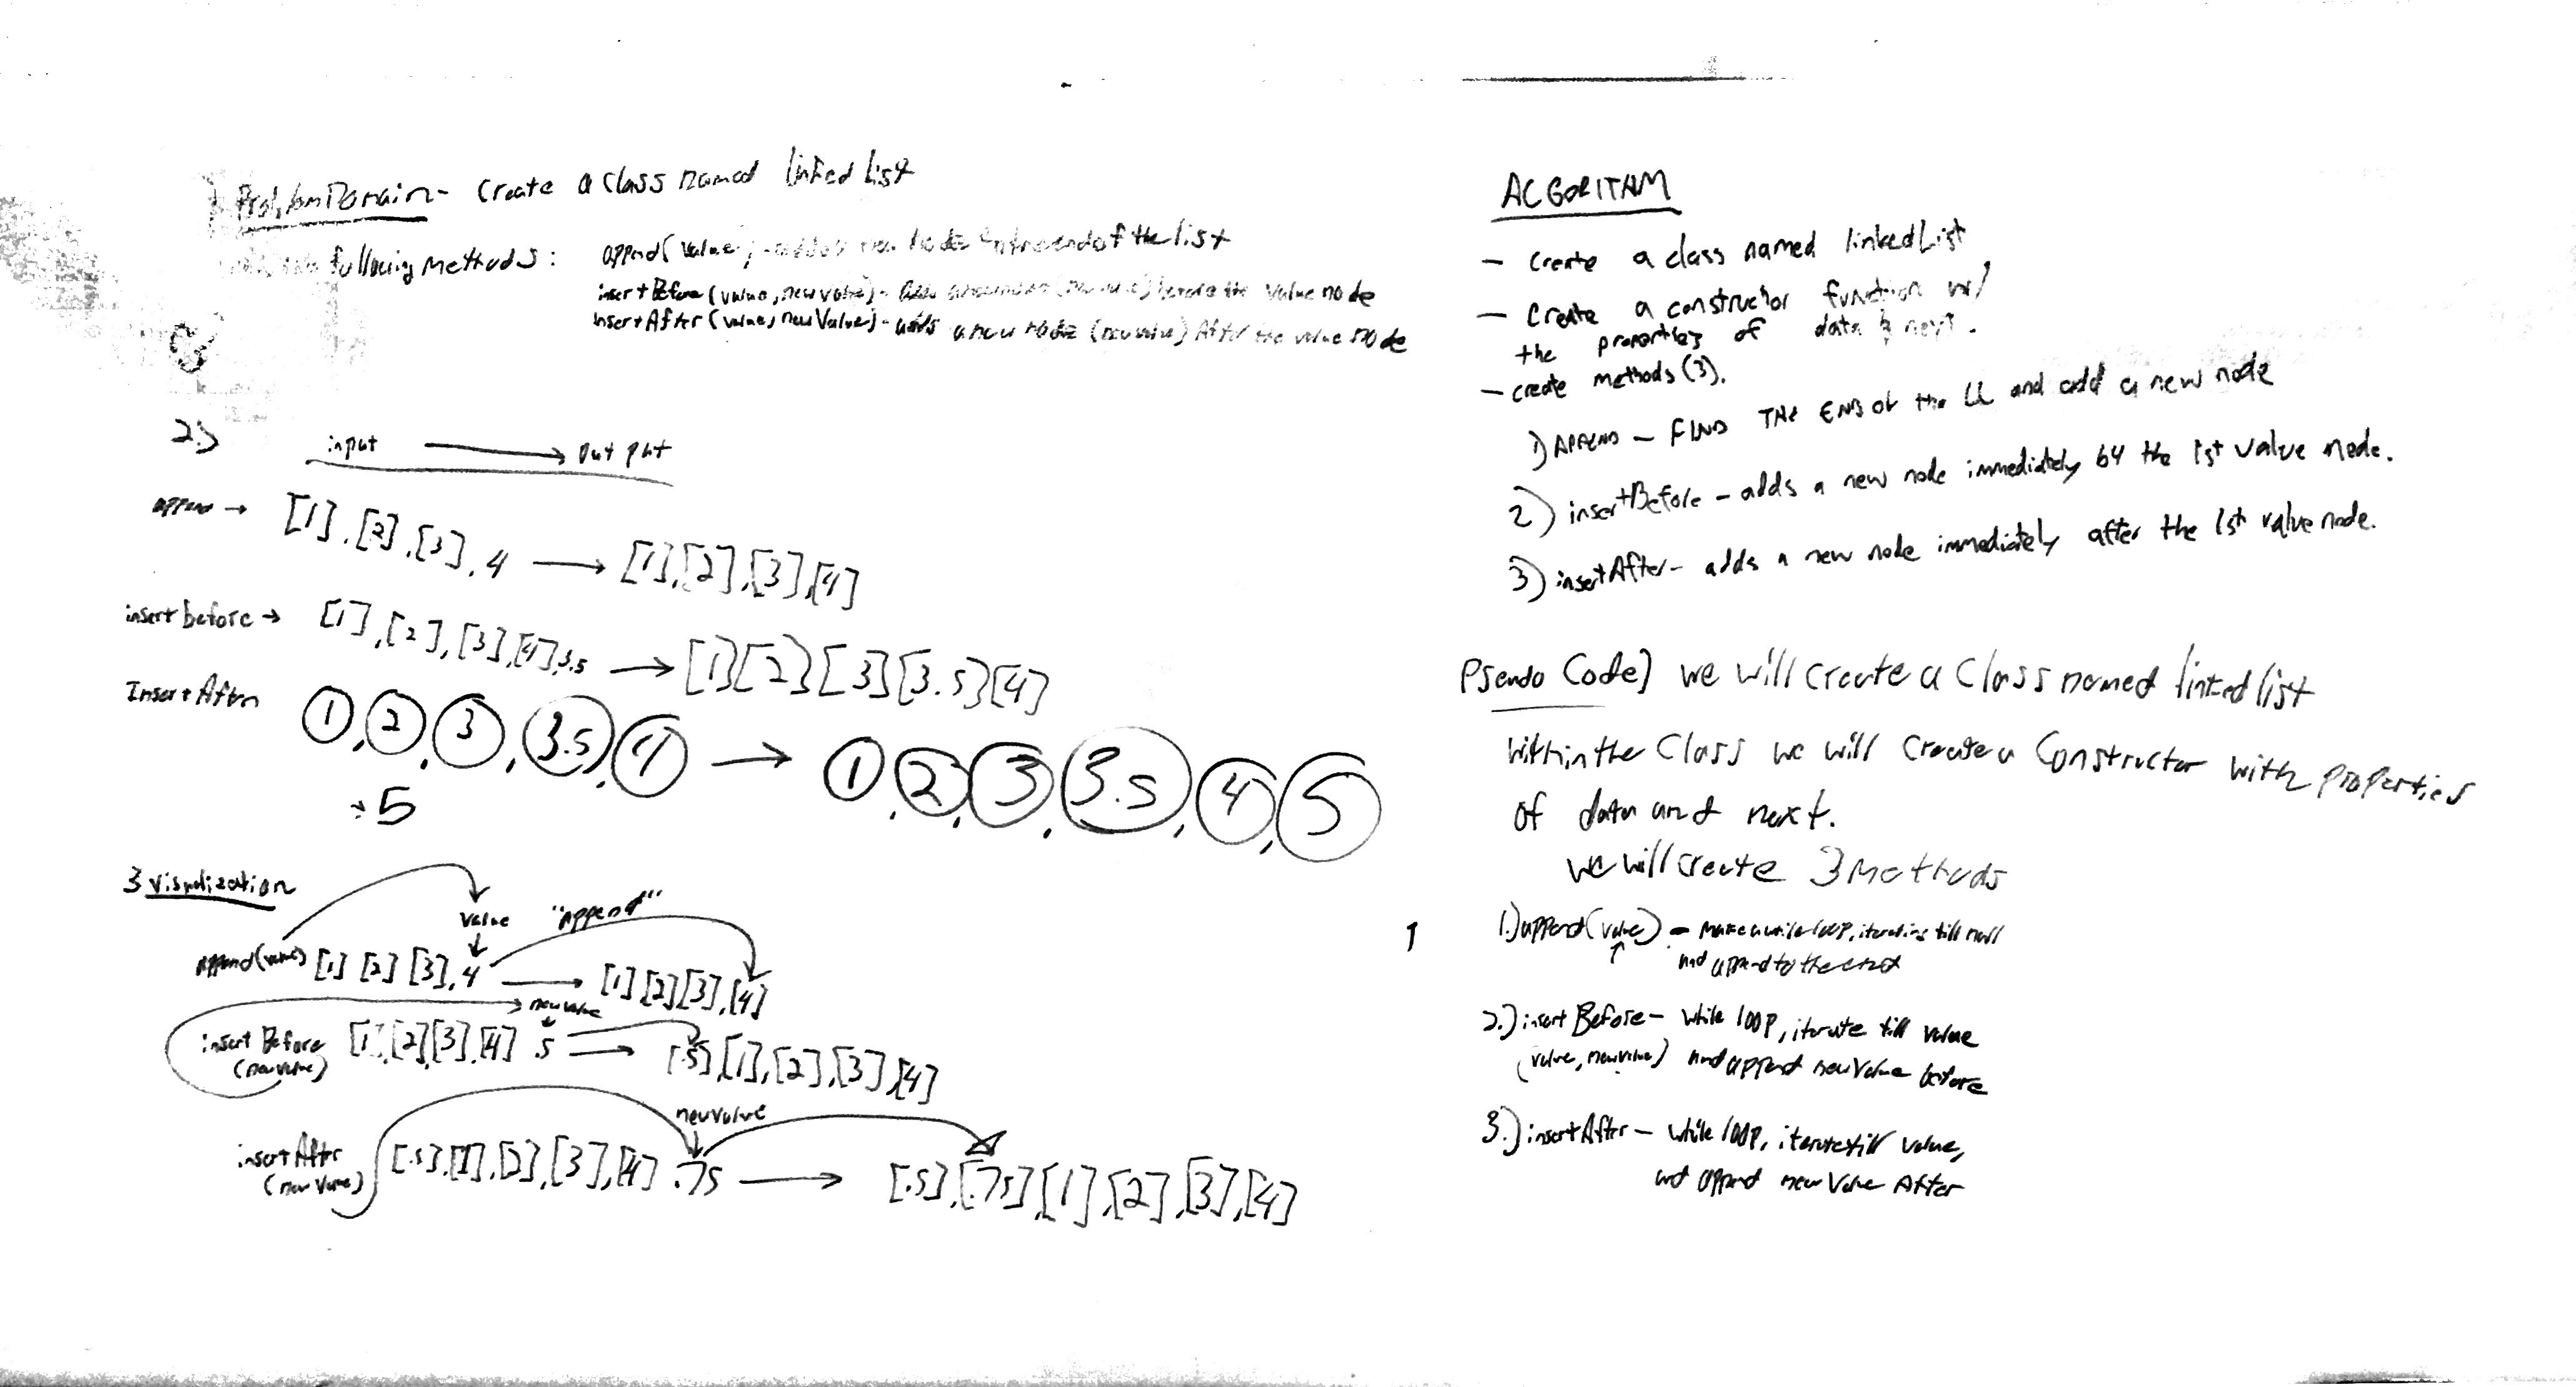 Problem Domain - Create a class named linked list
following methods: append(value) - adds a new node to the end of the list
insertBefore (value, newValue) - adds a new node (newvalue) before the value node
insertAfter (value, newValue) - adds a new node (newvalue) After the value node
2.)
input → Output
append → [1], [2], [3], 4 → [1], [2], [3], [4]
insert before → [1], [2], [3], [4], 3.5 → [1] [2] [3] [3.5] [4]
Insert After
1, 2, 3, 3.5, 4 → 1, 2, 3, 3.5, 4, 5
→ 5
3 visualization
value "Append"
append(value) [1] [2] [3], 4 → [1] [2] [3], [4]
newvalue
insert Before [1], [2] [3], [4] .5 → [.5], [1], [2], [3], [4]
(newvalue)
newvalue
insertAfter [.5], [1], [2], [3], [4] .75 → [.5], [.75], [1], [2], [3], [4]
(newvalue)
ALGORITHM
- create a class named linkedList
- create a constructor function w/
the properties of data & next.
- create methods (3).
1) APPEND - FIND THE END of the LL and add a new node
2) insertBefore - adds a new node immediately b4 the 1st value node.
3) insertAfter - adds a new node immediately after the 1st value node.
Pseudo Code] we will create a Class named linked list
within the Class we will create a Constructor with properties
of data and next.
we will create 3 methods
1.) append(value) - make a while loop, iterating till null
↑ and append to the end
2.) insert Before - while loop, iterate till value
(value, newvalue) and append newValue before
3.) insertAfter - while loop, iterate till value,
and append newValue After